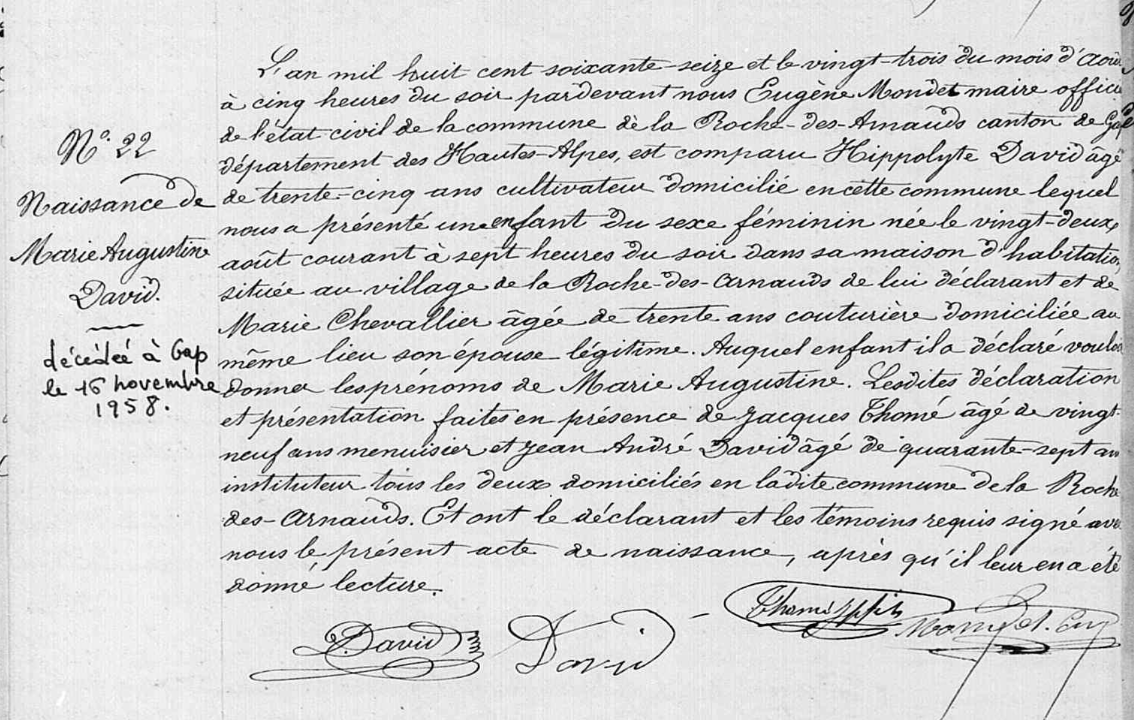 N.º 22
Naissance de
Marie Augustine
David.
décédée à Gap
le 16 novembre
1958.
L'an mil huit cent soixante seize et le vingt-trois du mois d'août
à cinq heures du soir pardevant nous Eugène Mondet maire offici
de l'état civil de la commune de la Roche-des-Arnauds canton de Gap
département des Hautes-Alpes, est comparu Hippolyte David âgé
de trente-cinq ans cultivateur domicilié en cette commune lequel
nous a présenté un enfant du sexe féminin née le vingt-deux
août courant à sept heures du soir dans sa maison d'habitation
située au village de la Roche-des-Arnauds de lui déclarant et de
Marie Chevallier âgée de trente ans couturière domiciliée au
même lieu son épouse légitime. Auquel enfant il a déclaré vouloir
donner les prénoms de Marie Augustine. Lesdites déclaration
et présentation faites en présence de Jacques Thomé âgé de vingt-
neuf ans menuisier et Jean André David âgé de quarante-sept an
instituteur tous les deux domiciliés en ladite commune de la Roche
des-Arnauds. Et ont le déclarant et les témoins requis signé ave
nous le présent acte de naissance, après qu'il leur en a été
donné lecture.
David David Mondet